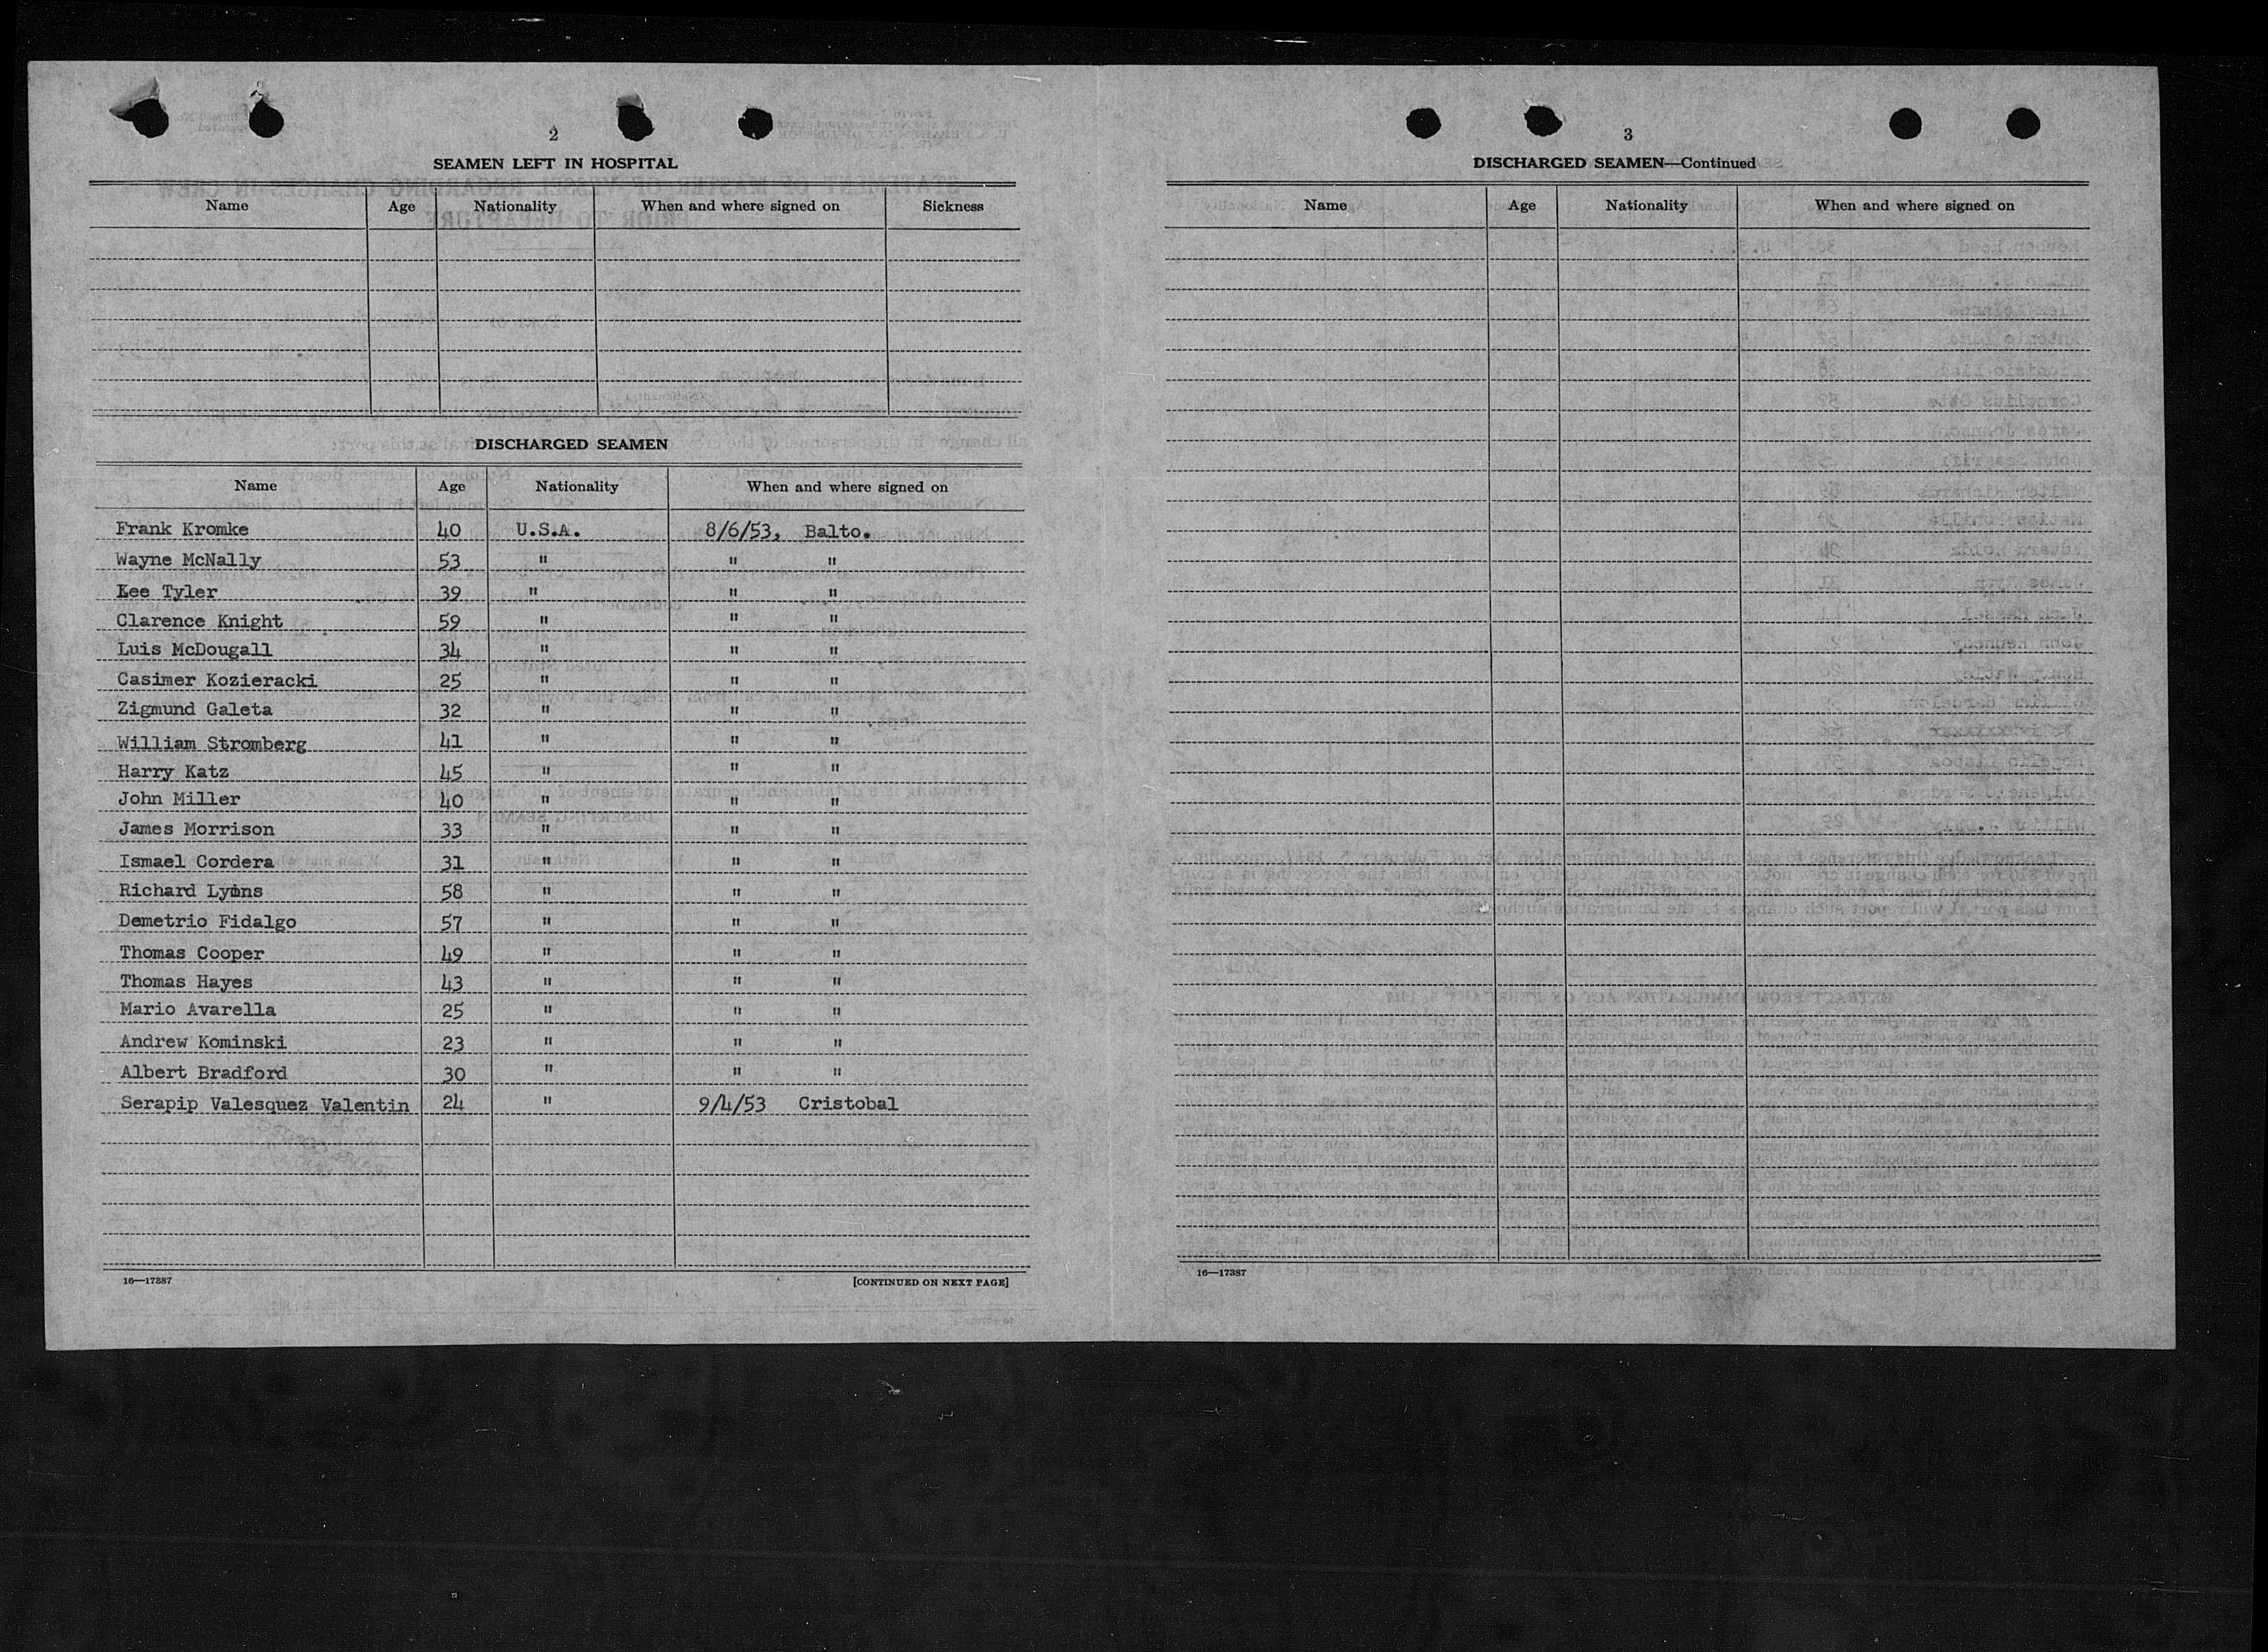 2
SEAMEN LEFT IN HOSPITAL
Name Age Nationality When and where signed on Sickness
DISCHARGED SEAMEN
Name Age Nationality When and where signed on
Frank Kromke 40 U.S.A. 8/6/53, Balto.
Wayne McNally 53 " " "
Lee Tyler 39 " " "
Clarence Knight 59 " " "
Luis McDougall 34 " " "
Casimer Kozieracki 25 " " "
Zigmund Galeta 32 " " "
William Stromberg 41 " " "
Harry Katz 45 " " "
John Miller 40 " " "
James Morrison 33 " " "
Ismael Cordera 31 " " "
Richard Lyons 58 " " "
Demetrio Fidalgo 57 " " "
Thomas Cooper 49 " " "
Thomas Hayes 43 " " "
Mario Avarella 25 " " "
Andrew Kominski 23 " " "
Albert Bradford 30 " " "
Serapip Valesquez Valentin 24 " 9/4/53 Cristobal
16—17387 [CONTINUED ON NEXT PAGE]
3
DISCHARGED SEAMEN—Continued
Name Age Nationality When and where signed on
16—17387